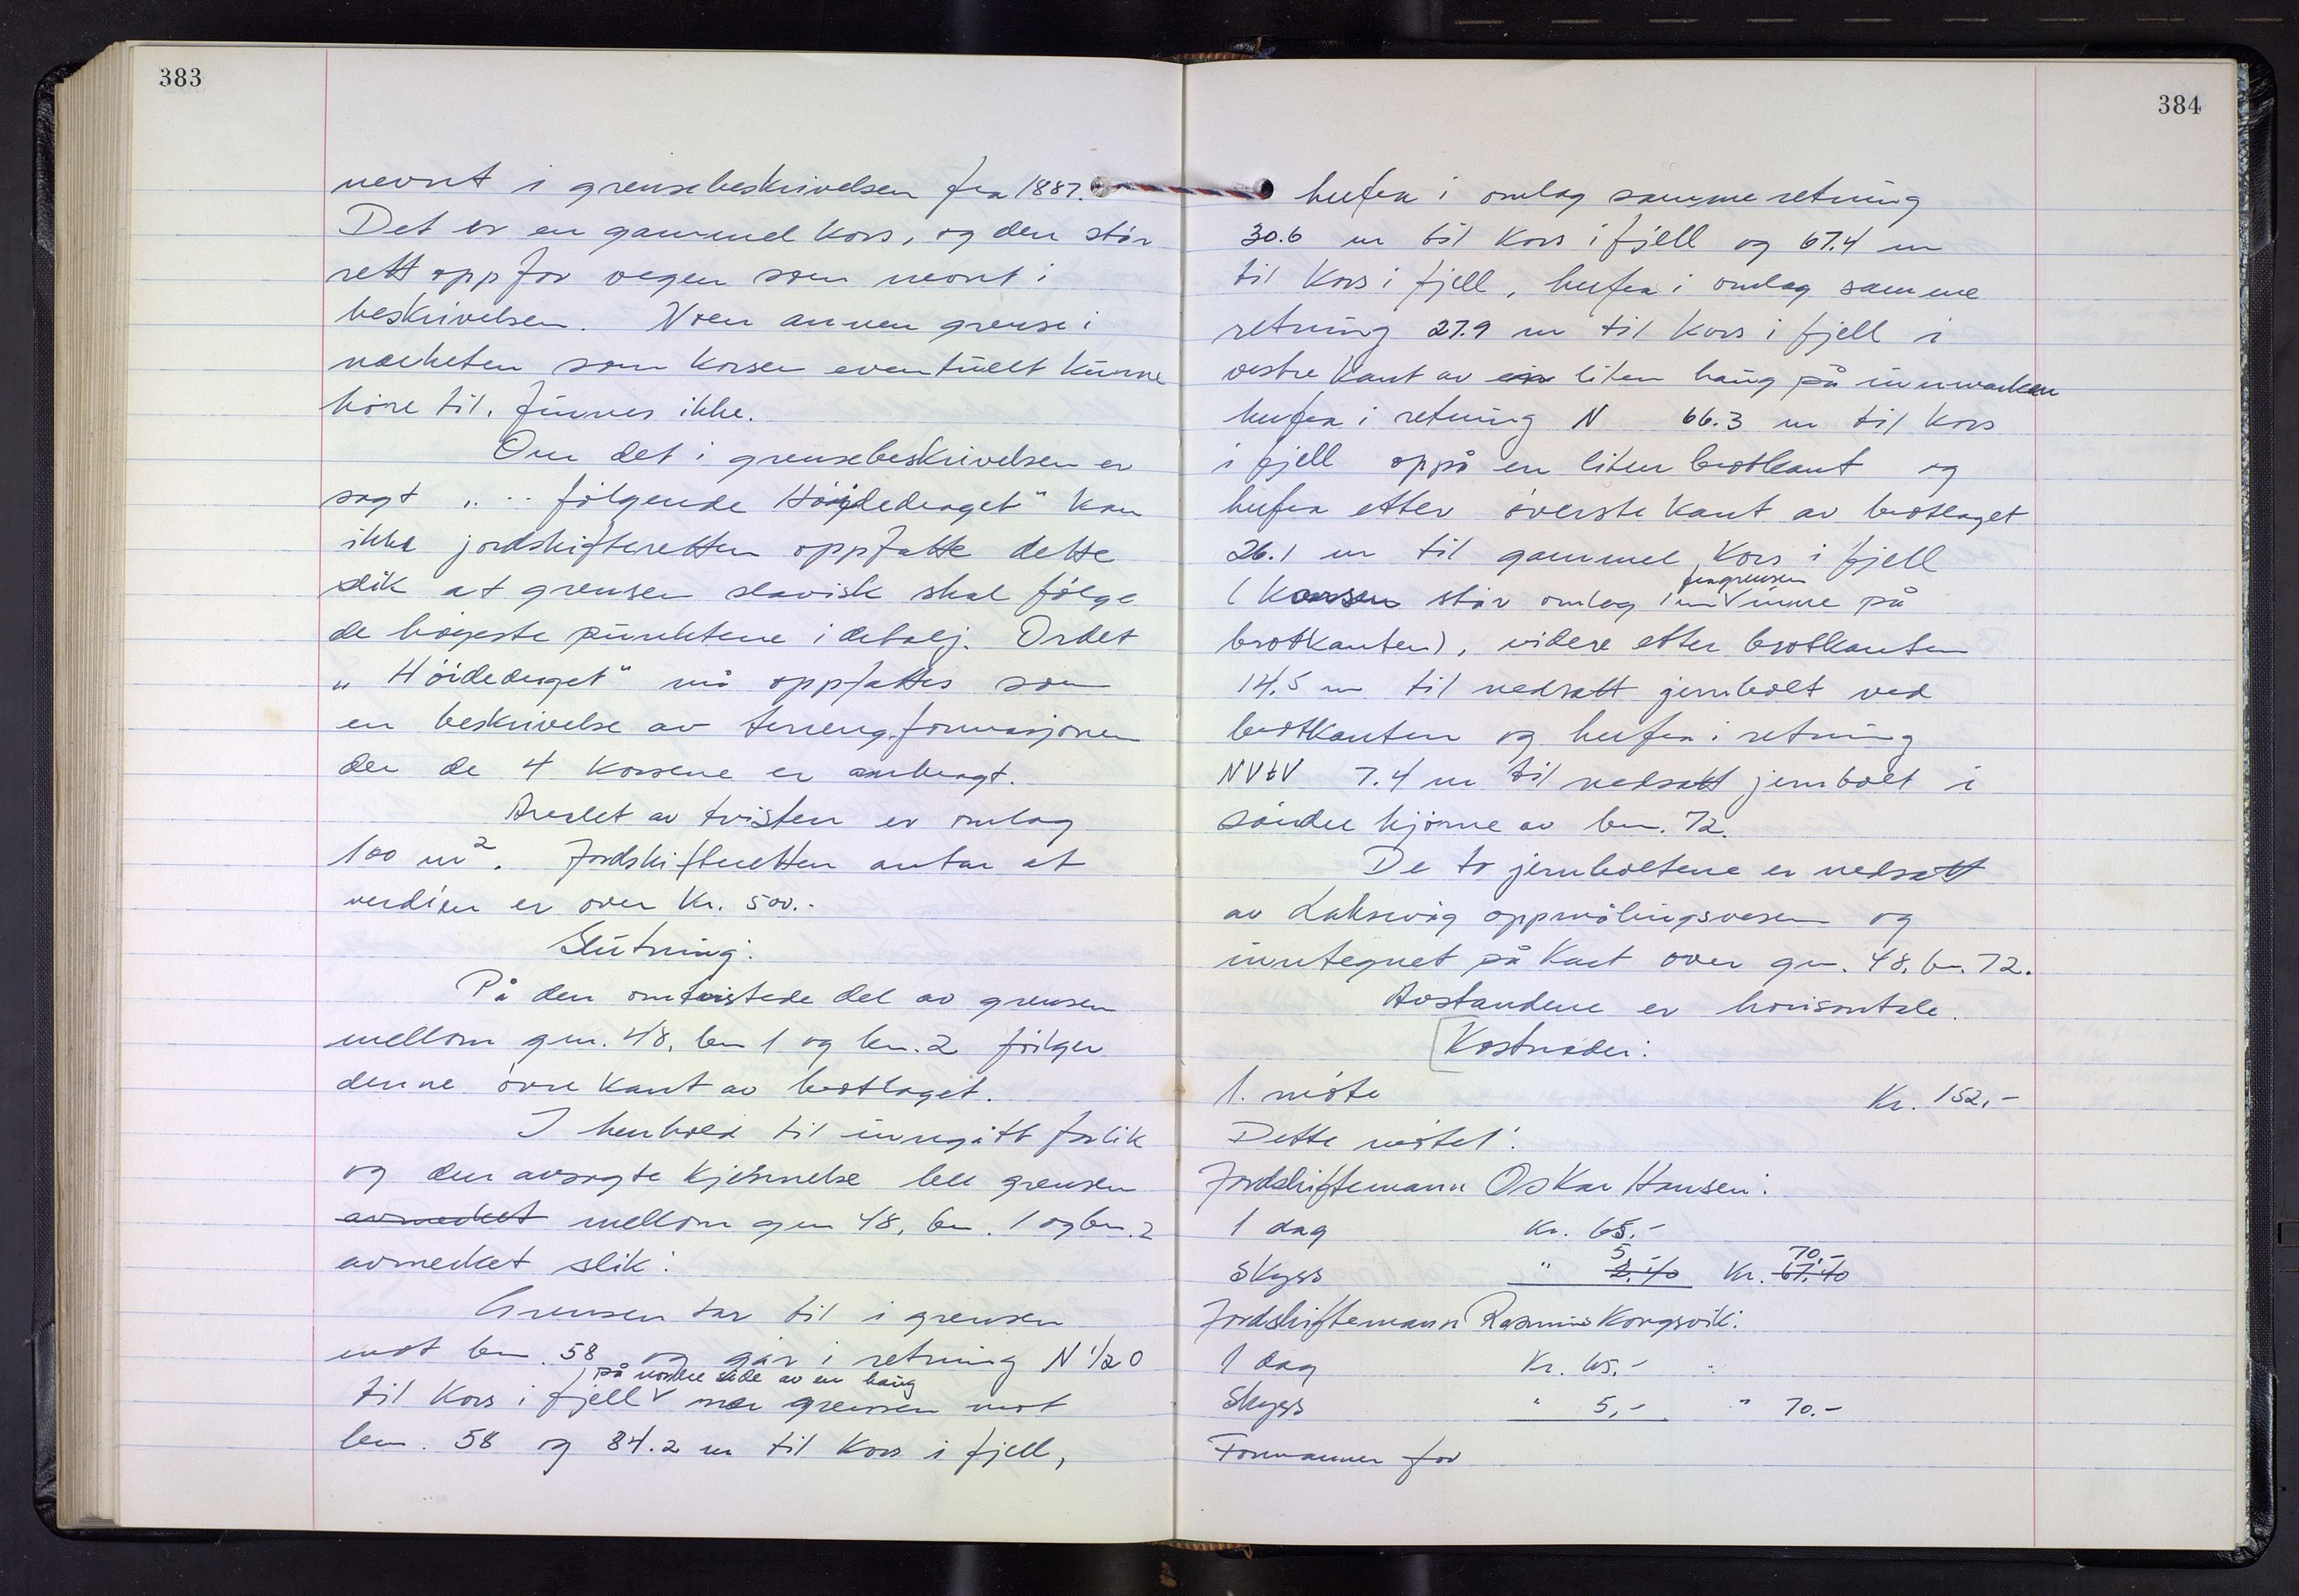 383
nevnt i grensebeskrivelsen fra 1887.
Det er en gammel kors, og den står
rett opp for vegen som nevnt i
beskrivelsen. Noen annen grense i
nærheten som korsen eventuelt kunne
høre til, finnes ikke.
Om det i grensebeskrivelsen er
sagt „ .. følgende Høidedraget" kan
ikke jordskifteretten oppfatte dette
slik at grensen slavisk skal følge
de høgeste punktene i detalj. Ordet
„ Høidedraget" må oppfattes som
en beskrivelse av terrengformasjonen
der de 4 korsene er anbragt.
Arealet av tvisten er omlag
100 m². Jordskifteretten antar at
verdien er over kr. 500.-
Slutning:
På den omtvistede del av grensen
mellom gnr. 48, bnr 1 og bnr. 2 følger
denne øvre kant av brotlaget.
I henhold til inngått forlik
og den avsagte kjennelse ble grensen
avmerket mellom gnr 48, bnr. 1 og bnr. 2
avmerket slik:
Grensen tar til i grensen
mot bnr. 58 og går i retning N 1/2 O
på nordre side av en haug
til kors i fjell V nær grensen mot
bnr. 58 og 84.2 m til kors i fjell,
384
herfra i omlag samme retning
30.6 m til kors i fjell og 67.4 m
til kors i fjell, herfra i omlag samme
retning 27.9 m til kors i fjell i
vestre kant av en liten haug på innmarken
herfra i retning N 66.3 m til kors
i fjell oppå en liten brotkant og
herfra etter øverste kant av brotlaget
26.1 m til gammel kors i fjell
fra grensen
( korsen står omlag 1 m V inne på
brotkanten), videre etter brotkanten
14.5 m til nedsatt jernbolt ved
brotkanten og herfra i retning
NVtV 7.4 m til nedsatt jernbolt i
søndre hjørne av bnr. 72.
De to jernboltene er nedsatt
av Laksevåg oppmålingsvesen og
inntegnet på kart over gnr. 48, bnr. 72.
Avstandene er horisontale.
Kostnader:
1. møte Kr. 152,-
Dette møtet:
Jordskiftemann Oskar Hansen:
1 dag Kr. 65,-
5,- 70,-
Skyss " 2.40 Kr. 67.40
Jordskiftemann Rasmus Kongsvik:
1 dag Kr. 65,-
Skyss " 5,- " 70.-
Formannen for